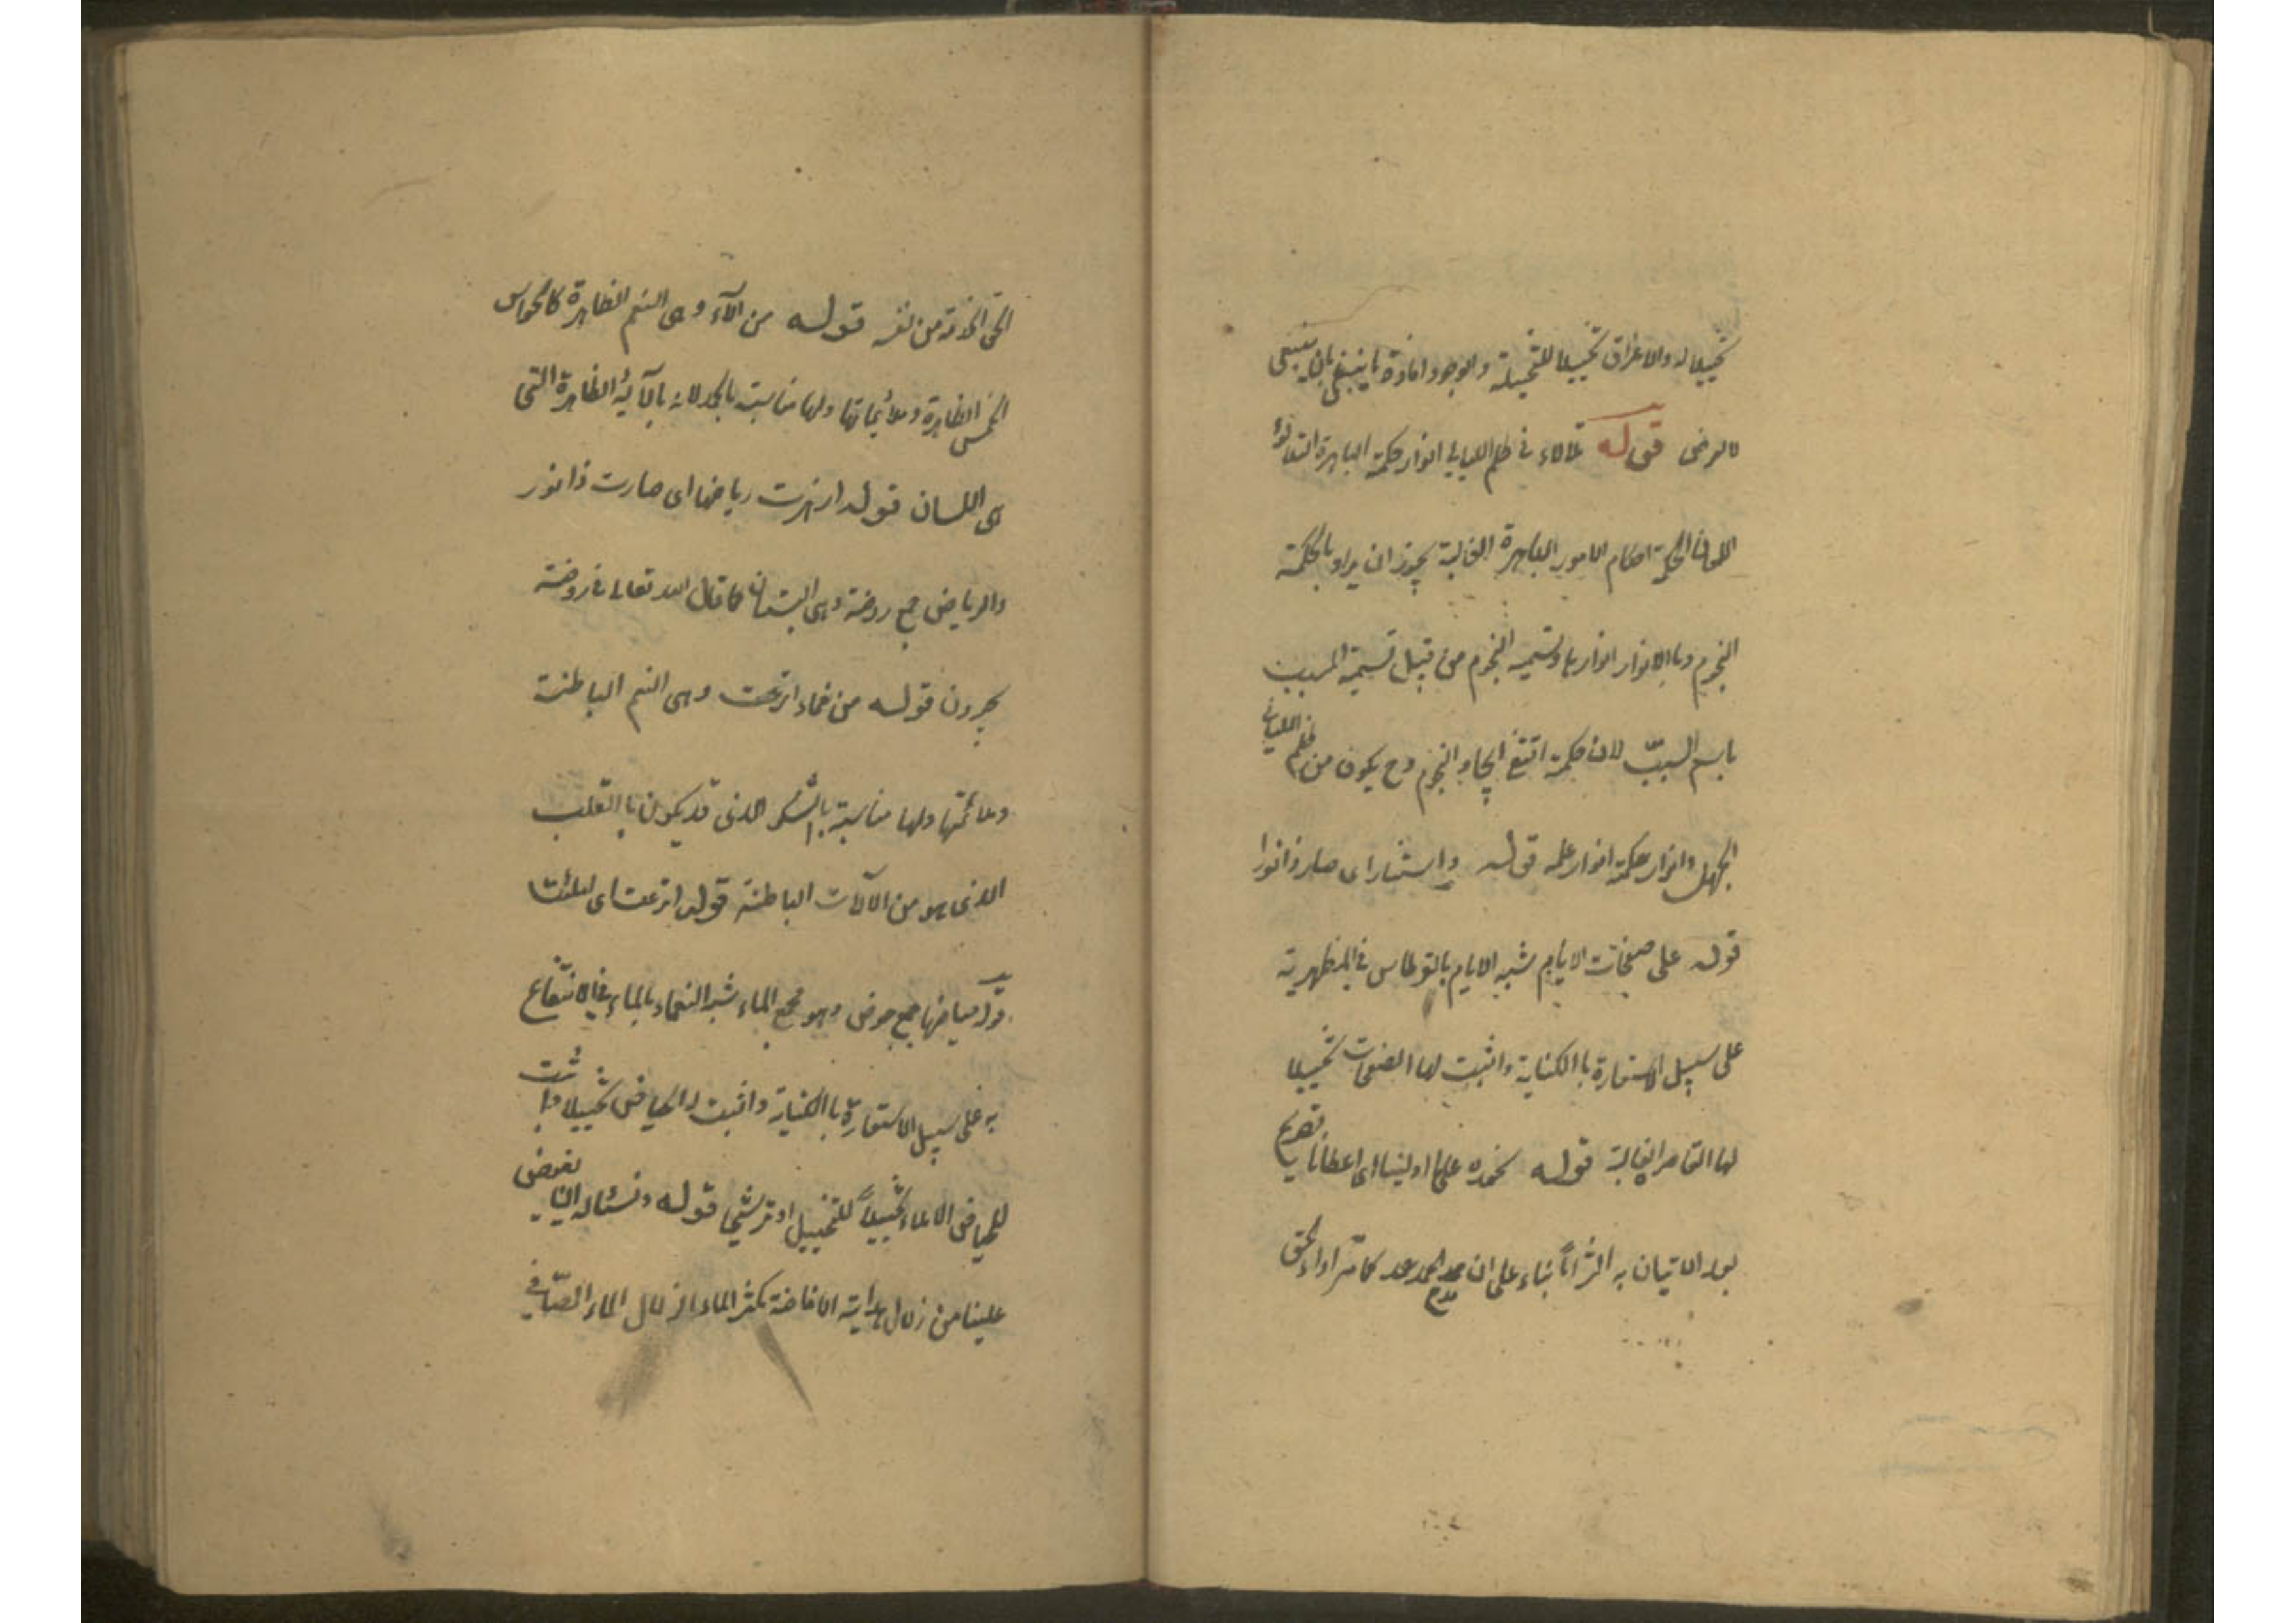 تخييلا له والاغراق تخييلا للتخييلية والوجود افادة ما ينبغى لمن ينبغى
لا لعوض قوله تلألاء فى ظلم الليالى انوار حكمته الباهرة التلألؤ
اللمعان الحكمة احكام الامور الباهرة الغالبة يجوز ان يراد بالحكمة
النجوم وبالانوار انوارها وتسمية النجوم من قبيل تسمية المسبب
باسم السبب لان حكمته اقتضى ايجاد النجوم وح يكون من ظلم الليالى
الجهل وانوار حكمته انوار علمه قوله واستنار اى صار ذا نورا
قوله على صفحات الايام شبه الايام بالقرطاس فى المظهرية
على سبيل الاستعارة باالكناية واثبت لها الصفحات تخييلا
لها القاصر الغالبة قوله نحمده على ما اولينا اى اعطانا تعريم
بعد الاتيان به اثرا بناء على ان الحمد كما مر اداء لحق
الحق من نفسه قوله من آلاء وهى النعم الظاهرة كالحواس
الخمس الظاهرة وملائماتها ولها مناسبة بالحمد لانه بالآية الظاهرة التى
هى اللسان قوله ازهرت رياضها اى صارت ذا نور
والرياض جمع روضة وهى البستان كما قال الله تعالى فى روضة
يحبرون قوله من نعماء اترعت وهى النعم الباطنة
وملائمتها ولها مناسبة باالشكر الذى قد يكون باالقلب
الذى هو من الآلات الباطنة قوله اترعت اى امتلئت
قوله حياضها جمع حوض وهو مجمع الماء شبه النعماء بالماء فى الانتفاع
به على سبيل الاستعارة باالكناية واثبت له الحياض تخييلا واثبت
للحياض الاملاء تخييلاً للتخييل او ترشيحا قوله ونسئاله ان يفيض
علينا من زلال هدايته الافاضة تكثر الماء الزلال الماء الصافى